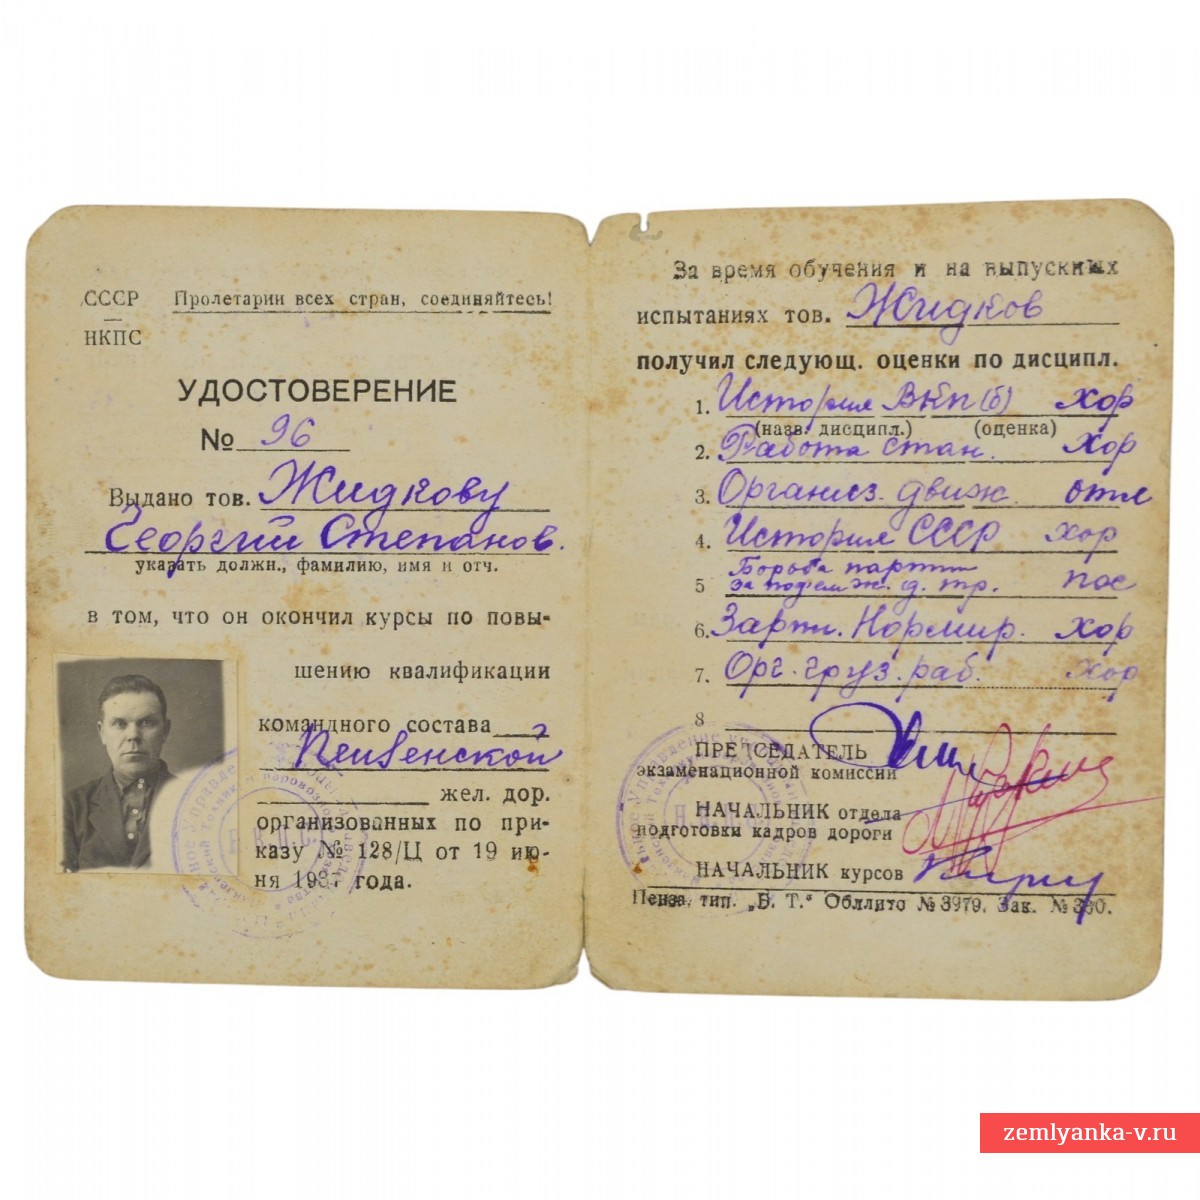 СССР
НКПС
Пролетарии всех стран, соединяйтесь!
УДОСТОВЕРЕНИЕ
№ 96
Выдано тов. Жидкову
Георгий Степанов.
указать должн., фамилию, имя и отч.
в том, что он окончил курсы по повы-
шению квалификации
командного состава
Пензенской
жел. дор.
организованных по при-
казу № 128/Ц от 19 ию-
ня 1937 года.
За время обучения и на выпускных
испытаниях тов. Жидков
получил следующ. оценки по дисципл.
1. История ВКП(б) хор
(назв. дисципл.) (оценка)
2. Работа стан. хор
3. Организ. движ. отл
4. История СССР хор
Борьба партии
5 за под'ем ж. д. тр. пос
6. Зарпл. Нормир. хор
7. Орг. груз. раб. хор
8
ПРЕДСЕДАТЕЛЬ
экзаменационной комиссии
НАЧАЛЬНИК отдела
подготовки кадров дороги
НАЧАЛЬНИК курсов
Пенза, тип. „Б. Т.“ Обллито № 3979. Зак. № 330.
zemlyanka-v.ru